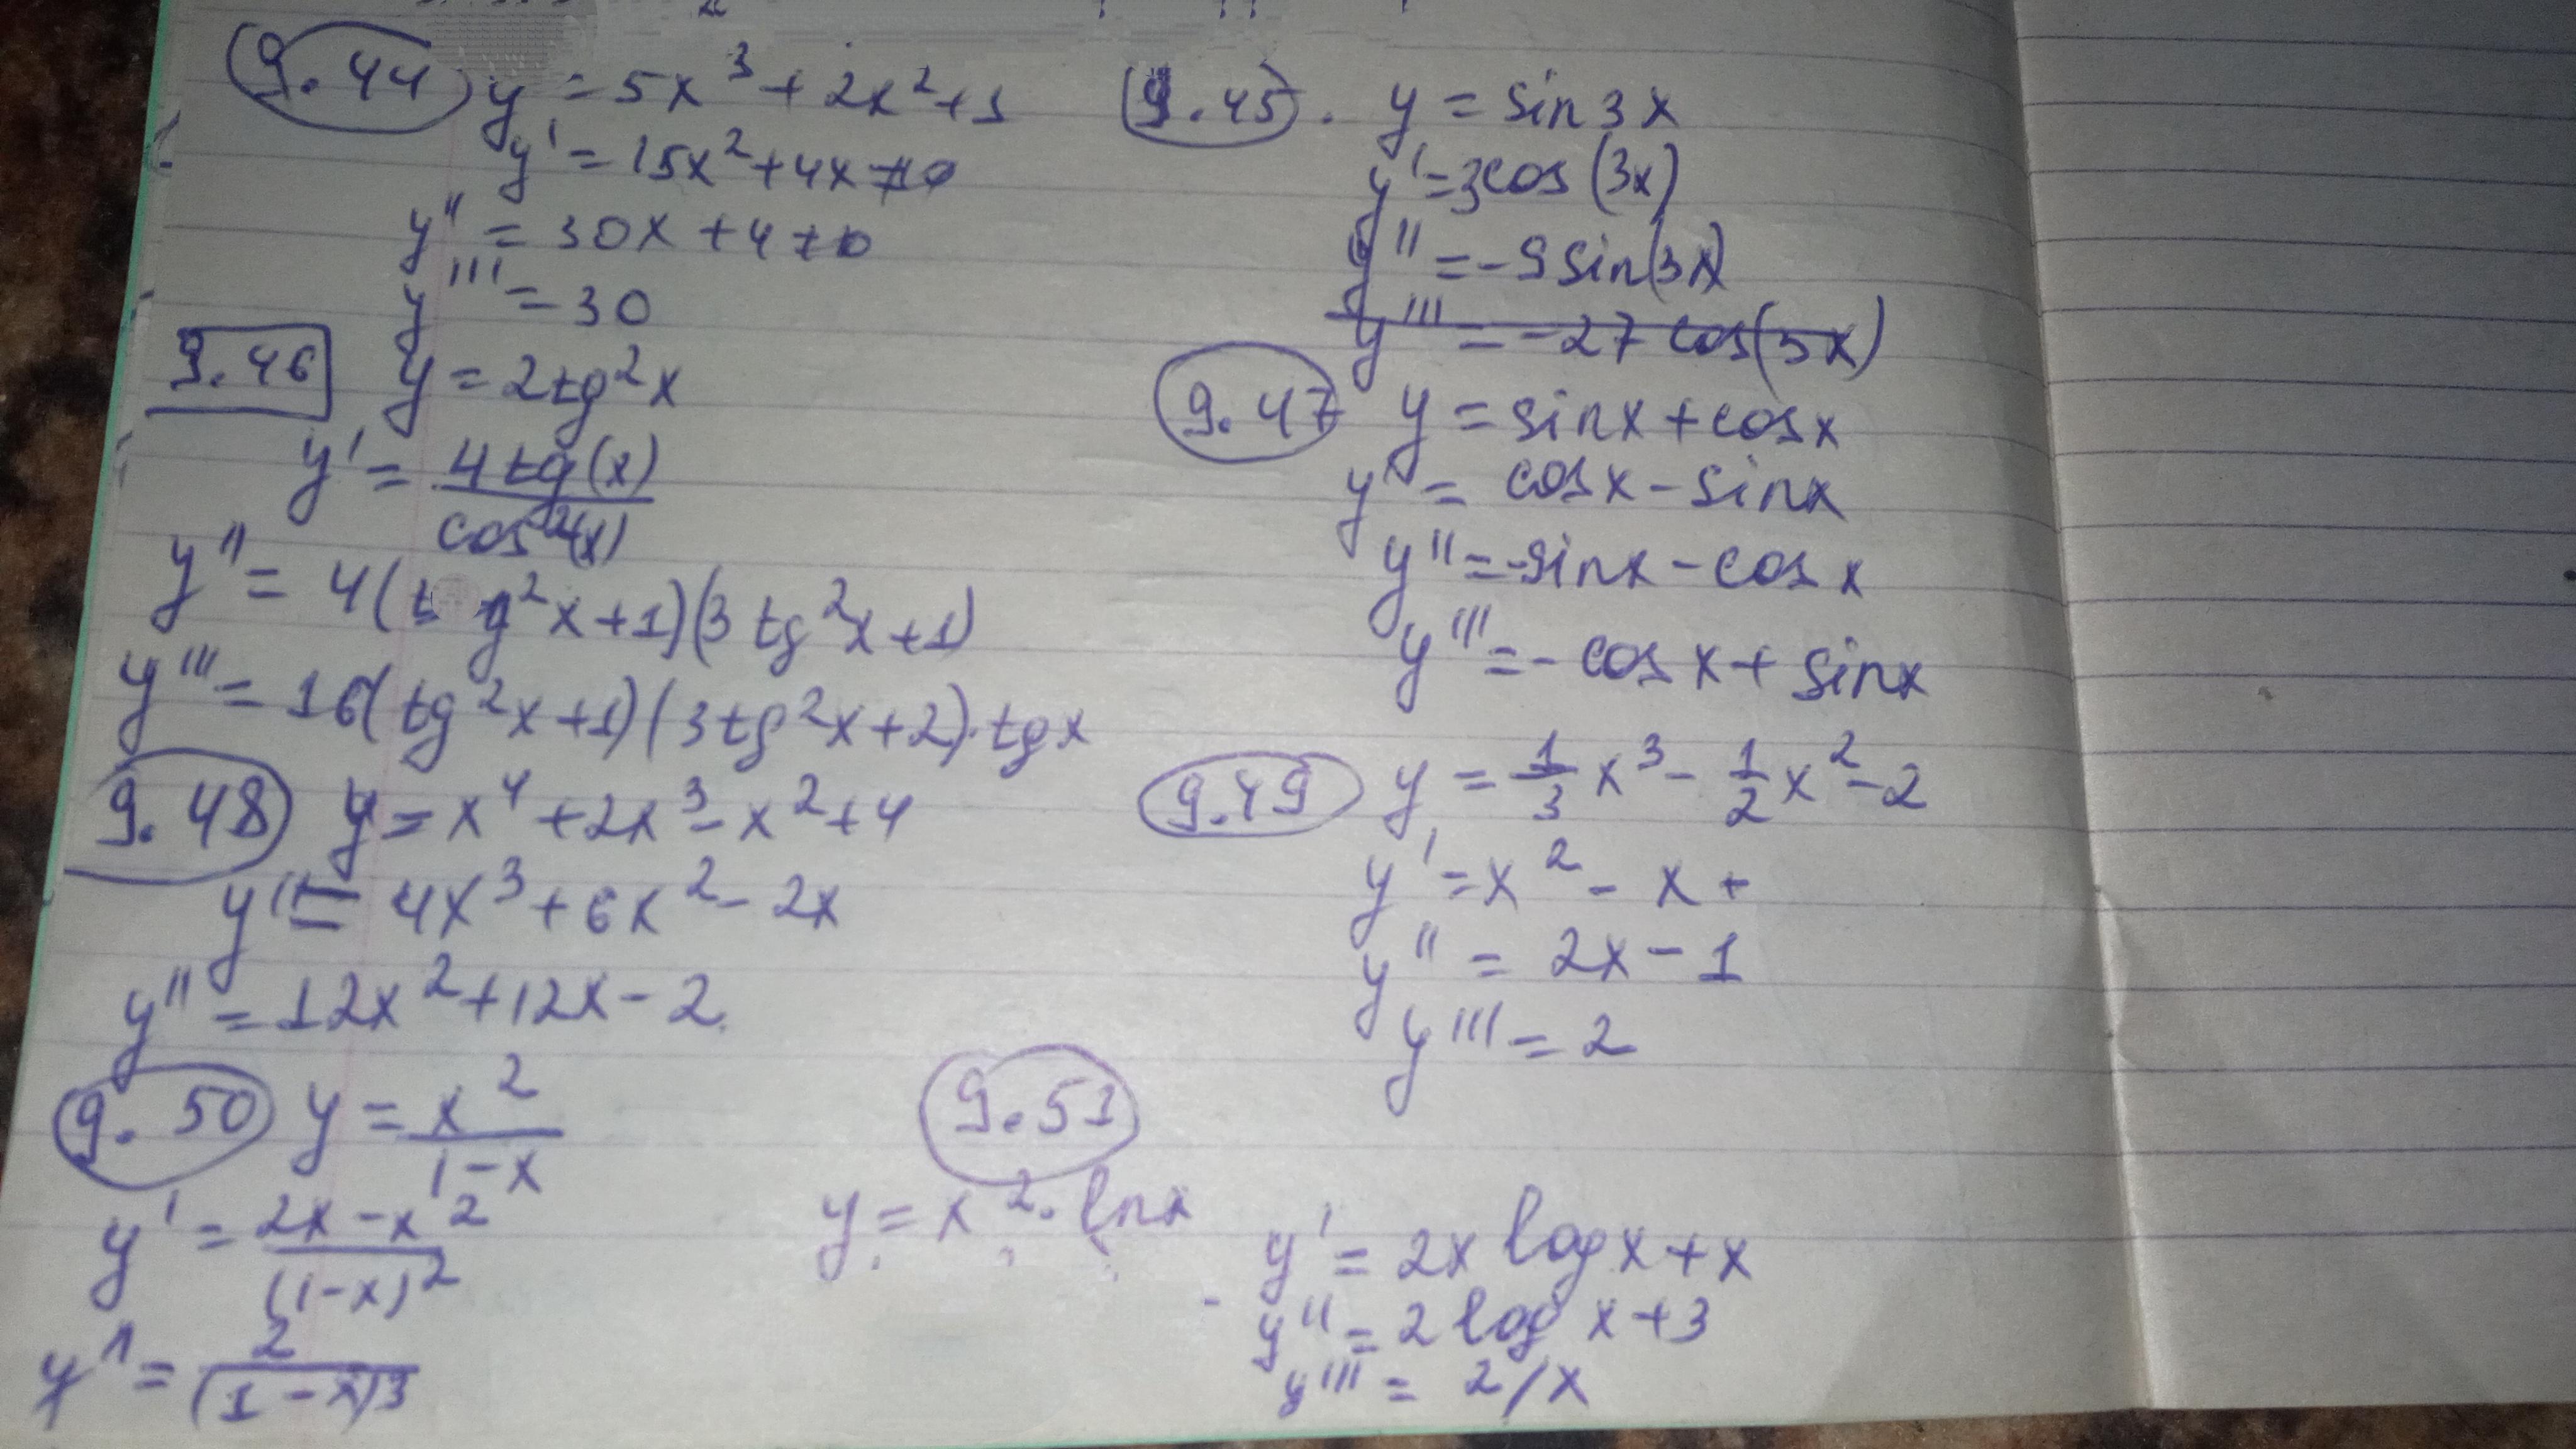 9.44 y = 5x³ + 2x² + 1
y' = 15x² + 4x
y'' = 30x + 4
y''' = 30
9.45. y = sin 3x
y' = 3cos (3x)
y'' = -9 sin(3x)
y''' = -27 cos(3x)
9.46 y = 2tg²x
y' = 4 tg(x) / cos²(x)
y'' = 4(tg²x+1)(3tg²x+1)
y''' = 16(tg²x+1)(3tg²x+2)·tgx
9.47 y = sinx + cosx
y' = cosx - sinx
y'' = -sinx - cosx
y''' = -cosx + sinx
9.48 y = x⁴ + 2x³ - x² + 4
y' = 4x³ + 6x² - 2x
y'' = 12x² + 12x - 2
9.49 y = 1/3 x³ - 1/2 x² - 2
y' = x² - x +
y'' = 2x - 1
y''' = 2
9.50 y = x² / 1-x
y' = 2x - x² / (1-x)²
y'' = 2 / (1-x)3
9.51
y = x² · lnx
y' = 2x log x + x
y'' = 2 log x + 3
y''' = 2/x